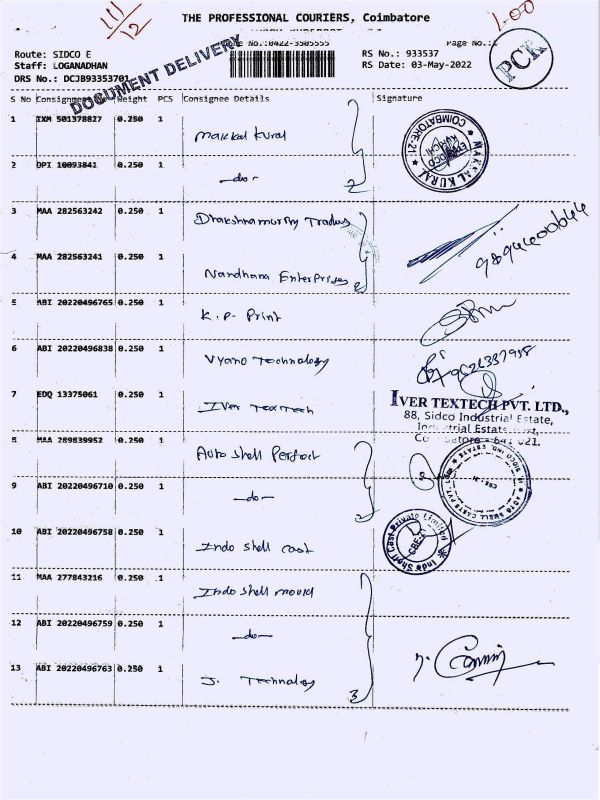 THE PROFESSIONAL COURIERS, Coimbatore
111
12
1.00
Page No.:
Route: SIDCO E
RS No.: 933537
Staff: LOGANADHAN
RS Date: 03-May-2022
DRS No.: DCJB93353701
DOCUMENT DELIVERY
PCK
S No Consignment Weight PCS Consignee Details Signature
1 IXM 501378827 0.250 1 Makkal Kural
MAKKAL KURAL COIMBATORE-21
2 DPI 10093841 0.250 1 -do- 2
3 MAA 282563242 0.250 1 Dhakshnamurthy Traders
4 MAA 282563241 0.250 1 Nandhana Enterprises 2
5 ABI 20220496765 0.250 1 K. P. Print
6 ABI 20220496838 0.250 1 Vyano Technology
7 EDQ 13375061 0.250 1 Iver Textech
IVER TEXTECH PVT. LTD.,
88, Sidco Industrial Estate,
Industrial Estate Post,
Coimbatore - 641 021.
8 MAA 289839952 0.250 1 Auto Shell Perfect
9 ABI 20220496710 0.250 1 -do- 2
10 ABI 20220496758 0.250 1 Indo Shell Cast
Indo Shell Cast Private Limited
CBE-21
11 MAA 277843216 0.250 1 Indo Shell Mould
12 ABI 20220496759 0.250 1 -do-
13 ABI 20220496763 0.250 1 J. Technology 3